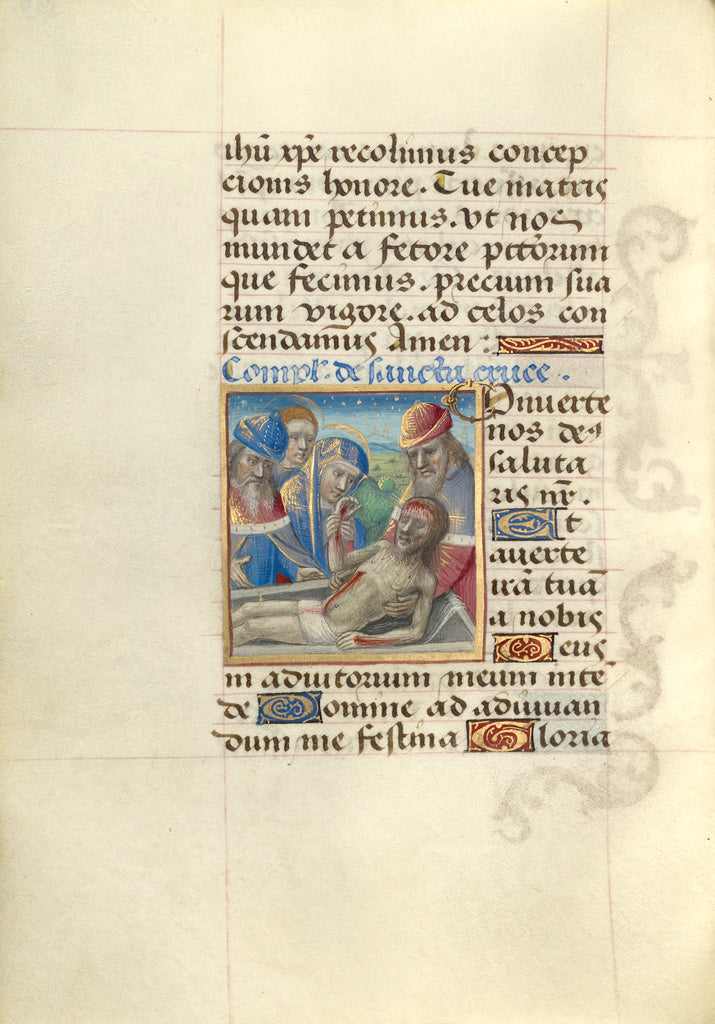 ihū xp̄e recolimus concep
cionis honore. Tue matris
quam petimus. Vt nos
mundet a fetore pctōrum
que fecimus. precium sua
rum vigore. ad celos con
scendamus Amen :
Compl. de sancta cruce .
Conuerte
nos deˢ
saluta
ris nr̄ .
Et
auerte
irā tuā
a nobis
Deus
in adiutorium meum inte
de Domine ad adiuuan
dum me festina Gloria